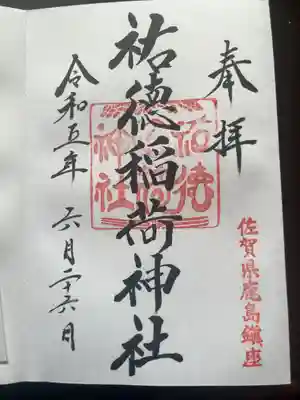 奉拝
佐賀県鹿島鎮座
祐徳稲荷神社
祐徳稲荷神社
令和五年 六月二十六日